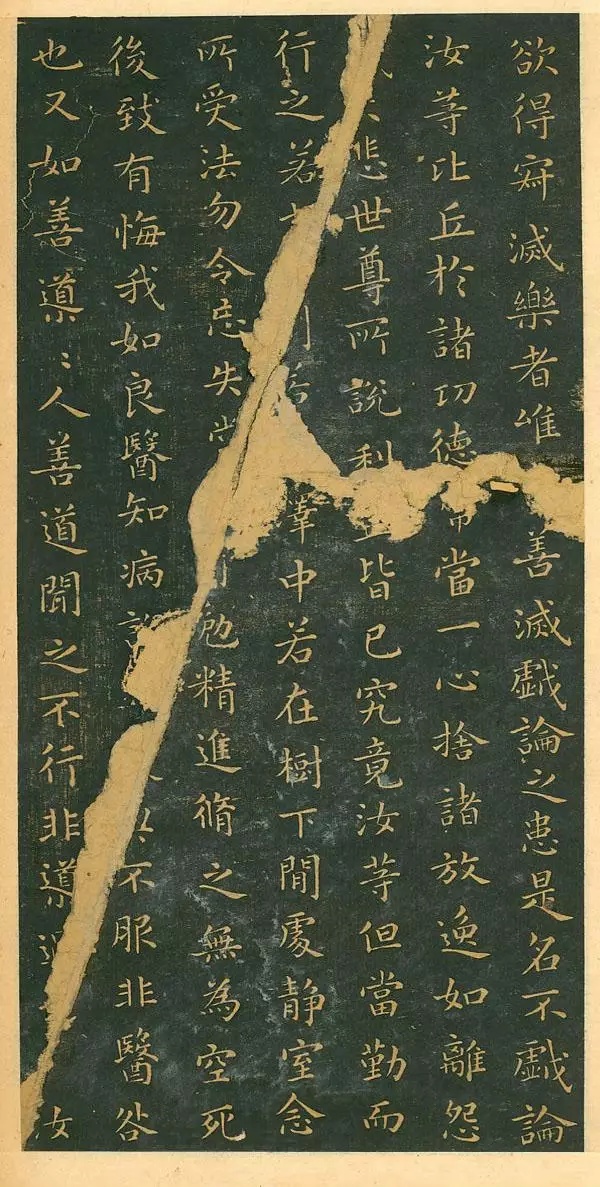 欲得寂滅樂者唯善滅戲論之患是名不戲論
汝等比丘於諸功德當一心捨諸放逸如離怨
悲世尊所說利皆已究竟汝等但當勤而
行之若中若在樹下閒處静室念
所受法勿令忘失勉精進脩之無為空死
後致有悔我如良醫知病不服非醫咎
也又如善導〻人善道聞之不行非導汝